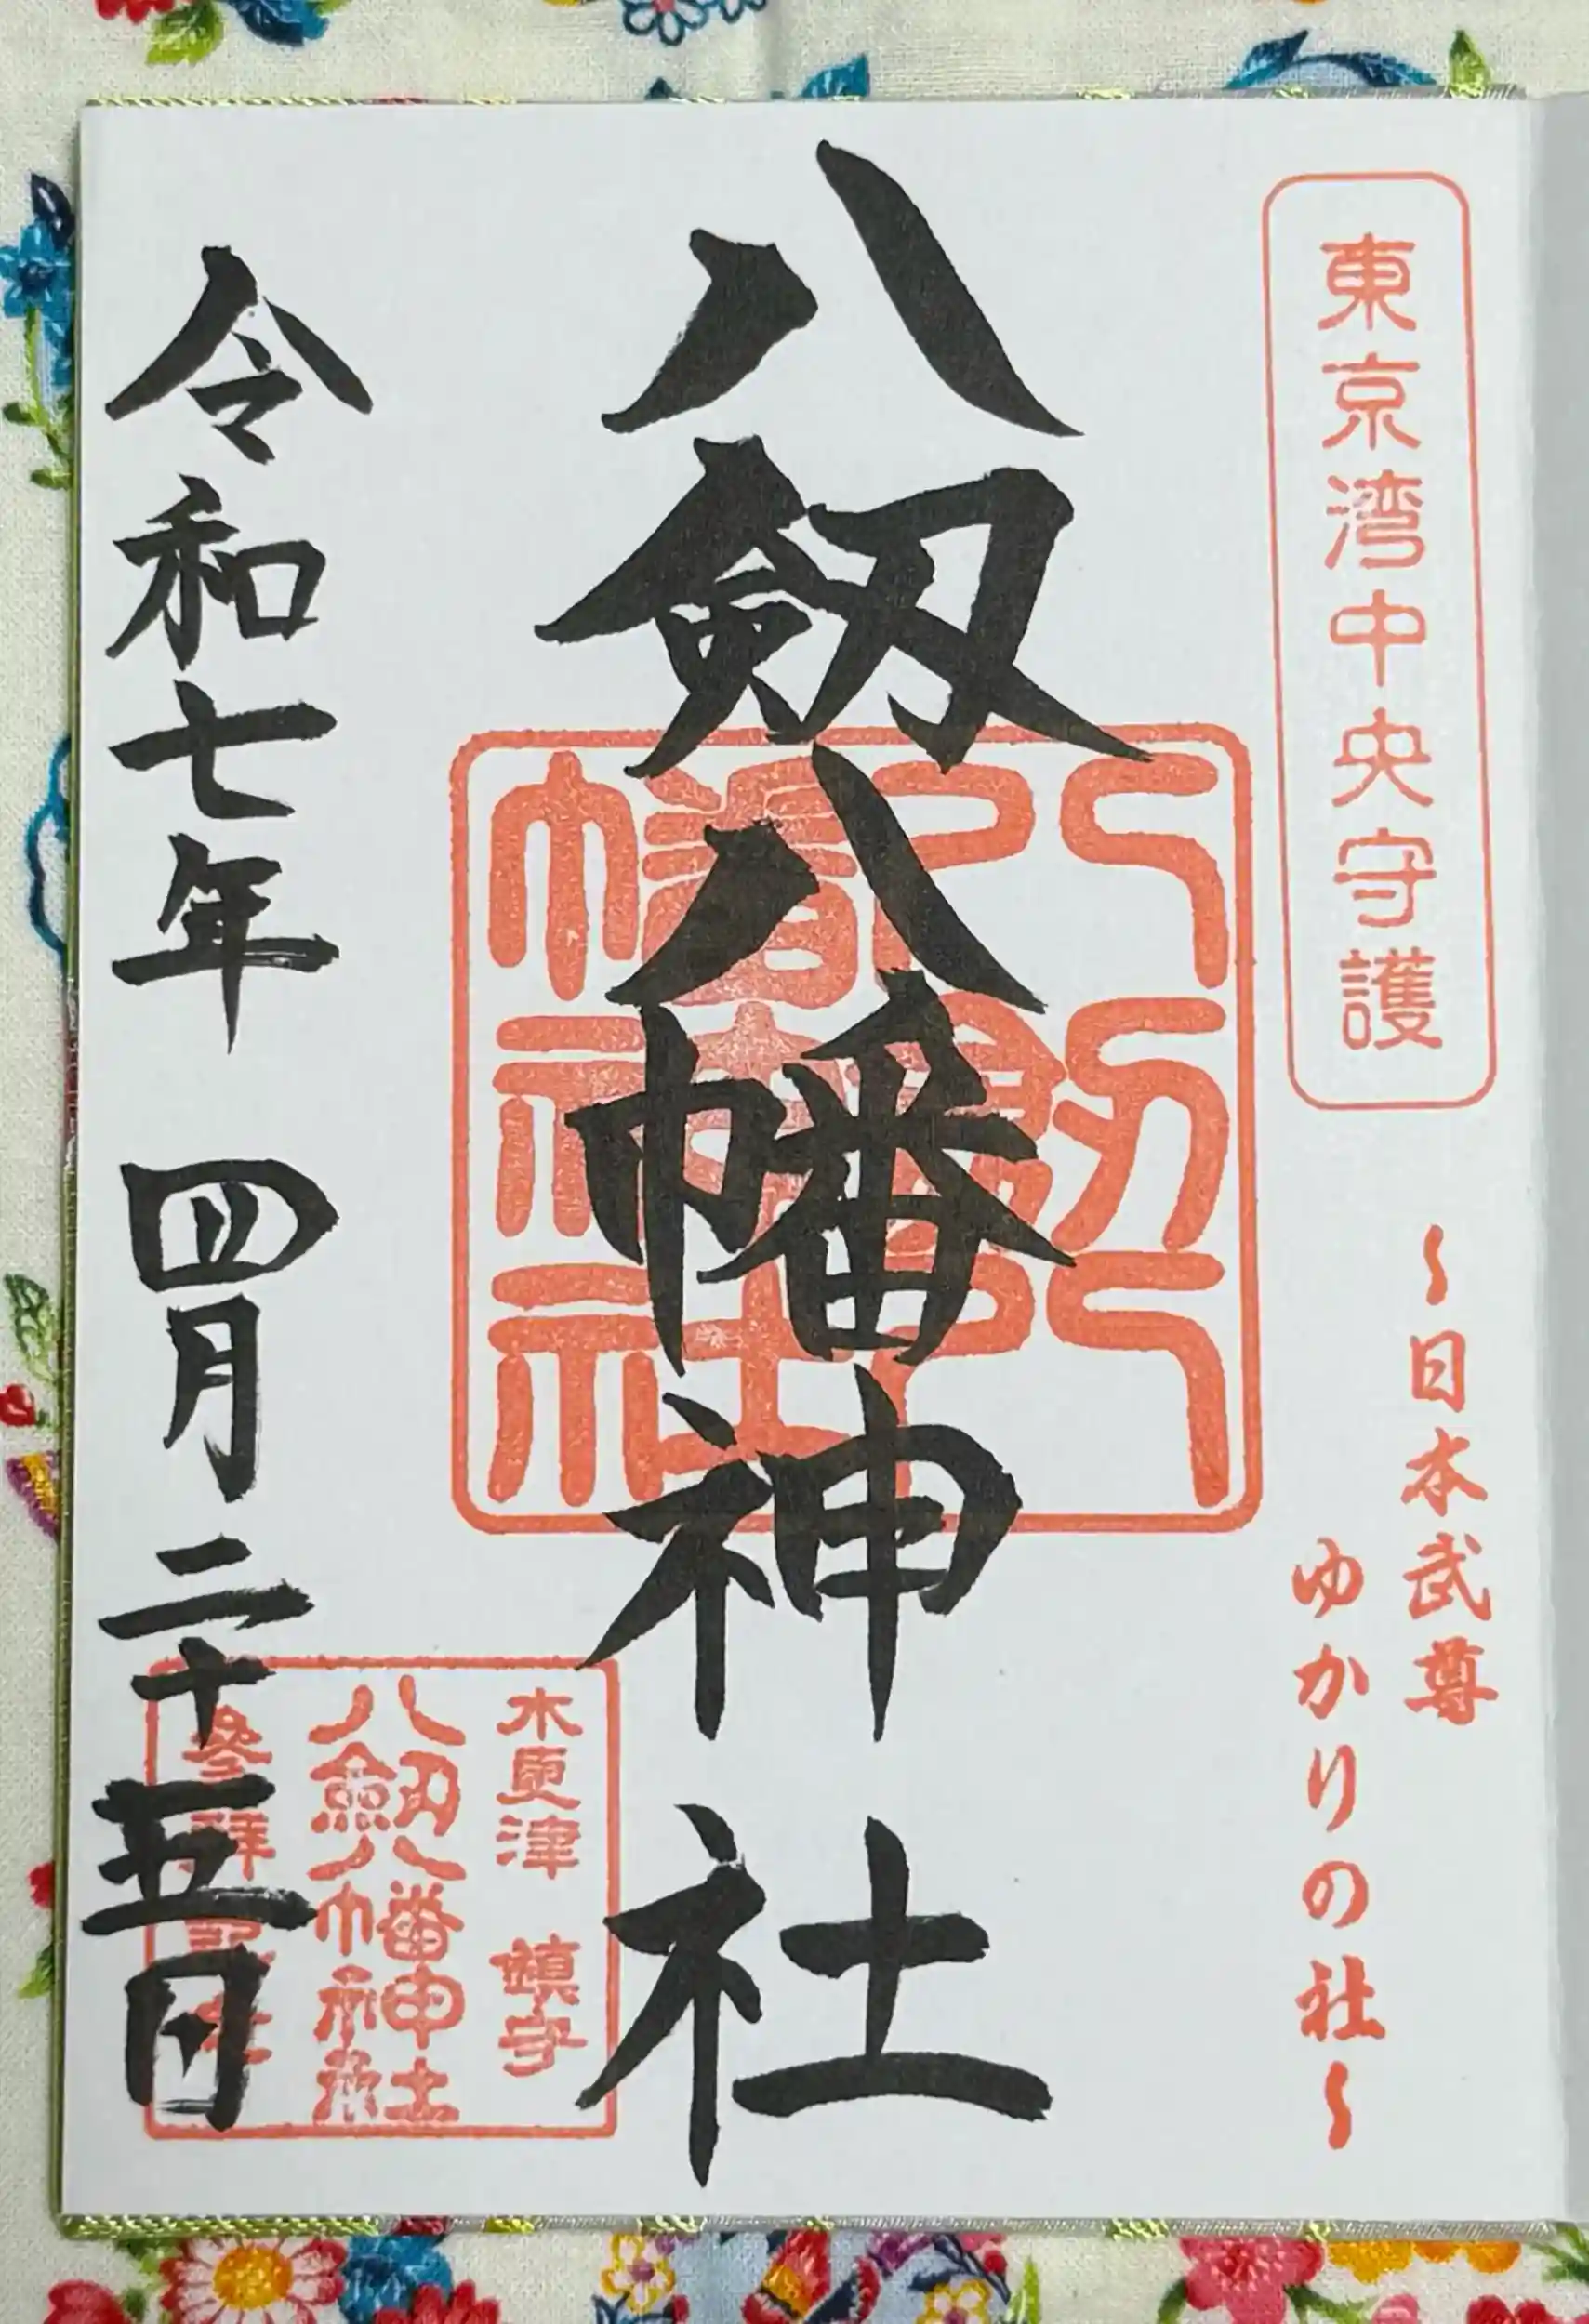 東京湾中央守護
～日本武尊
ゆかりの社～
八劔八幡神社
八劔八幡神社
木更津 鎮守
八劔八幡神社
令和七年 四月二十五日